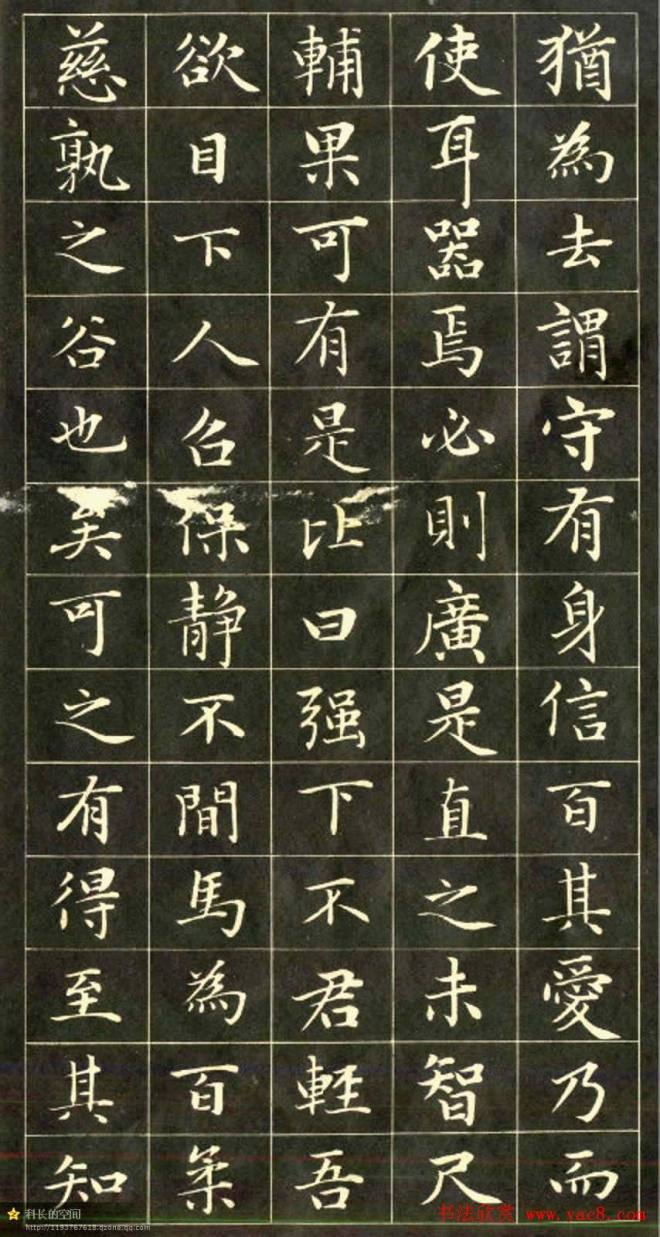 猶為去謂守有身信百其愛乃而
使耳器焉必則廣是直之未智尺
輔果可有是比曰强下不君輕吾
欲目下人召保靜不間馬為百柔
慈孰之谷也矣可之有得至其知
科长的空间
http://1193767618.qzone.qq.com
书法欣赏 www.yac8.com